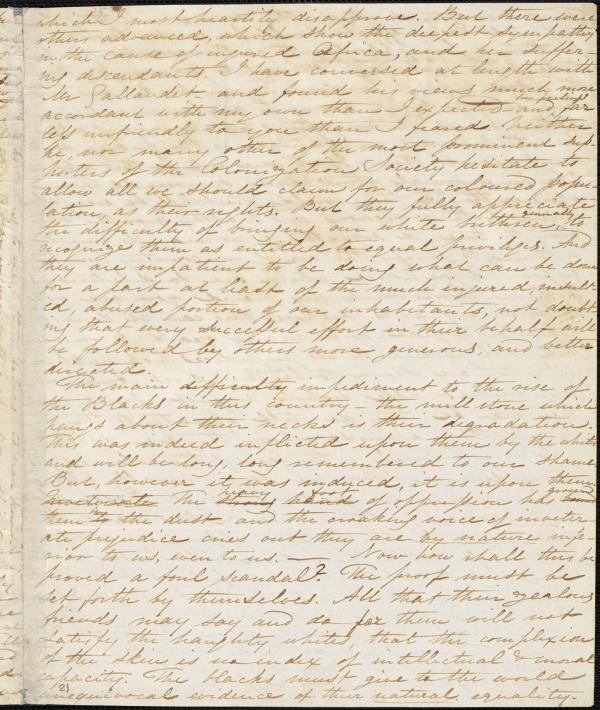 which I most heartily disapprove. But there were
others advanced, which show the deepest sympathy
in the cause of injured Africa, and her suffer-
ing descendants. I have conversed at length with
Mr Gallaudet and found his views much more
accordant with my own than I expected and his feelings far
less unfriendly to you than I feared. Neither
he, nor many other of the most prominent sup-
porters of the Colonization Society hesitate to
allow all we should claim for our coloured popu-
lation, as their rights. But they fully appreciate
the difficulty of bringing our white brethren generally to
recognize them as entitled to equal privileges. And
they are impatient to be doing what can be done
for a part at least of the much injured, insult-
ed, abused portion of our inhabitants, not doubt-
ing that every successful effort in their behalf will
be followed by others more generous, and better
directed.
The main difficulty impediment to the rise of
the Blacks in this country – the mill stone which
hangs about their necks is their degradation.
This was indeed inflicted upon them by the whites
and will be long, long remembered to our shame.
But, however it was induced, it is upon them.
The heavy foot of oppression has ground
them to the dust and the croaking voice of inveter-
ate prejudice cries out they are by nature infe-
rior to us, even to us. — Now how shall this be
proved a foul scandal? The proof must be
set forth by themselves. All that their zealous
friends may say and do for them will not
satisfy the haughty whites, that the complexion
of the skin is no index of intellectual & moral
capacity. The blacks must give to the world
unequivocal evidence of their natural equality.
21